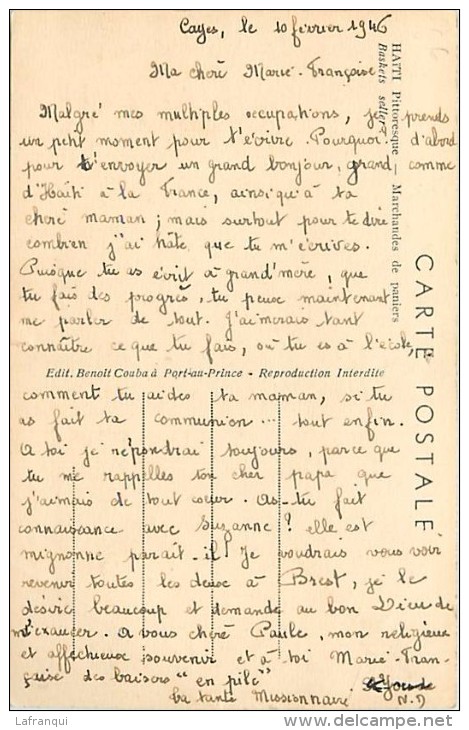 Cayes, le 10 février 1946
Ma chère Marie-Françoise
Malgré mes multiples occupations, je prends
un petit moment pour t'écrire. Pourquoi ? d'abord
pour t'envoyer un grand bonjour, grand comme
d'Haïti à la France, ainsi qu'à ta
chère maman ; mais surtout pour te dire
combien j'ai hâte que tu m'écrives.
Puisque tu as écrit à grand'mère, que
tu fais des progrès, tu peux maintenant
me parler de tout. J'aimerais tant
connaître ce que tu fais, où tu es à l'école,
Edit. Benoit Couba à Port-au-Prince - Reproduction Interdite
comment tu aides ta maman, si tu
as fait ta communion ... tout enfin.
A toi je répondrai toujours, parce que
tu me rappelles ton cher papa que
j'aimais de tout coeur. As-tu fait
connaissance avec Suzanne ? elle est
mignonne paraît-il ! Je voudrais vous voir
revenir toutes les deux à Brest, je le
désire beaucoup et demande au bon Dieu de
m'exaucer. A vous chère Paule, mon religieux
et affectueux souvenir et à toi Marie-Fran-
çoise des baisers "en pile"
ta tante Missionnaire
N.D
HAITI Pittoresque — Marchandes de paniers
Baskets seller
CARTE POSTALE
Lafranqui
www.delcampe.net